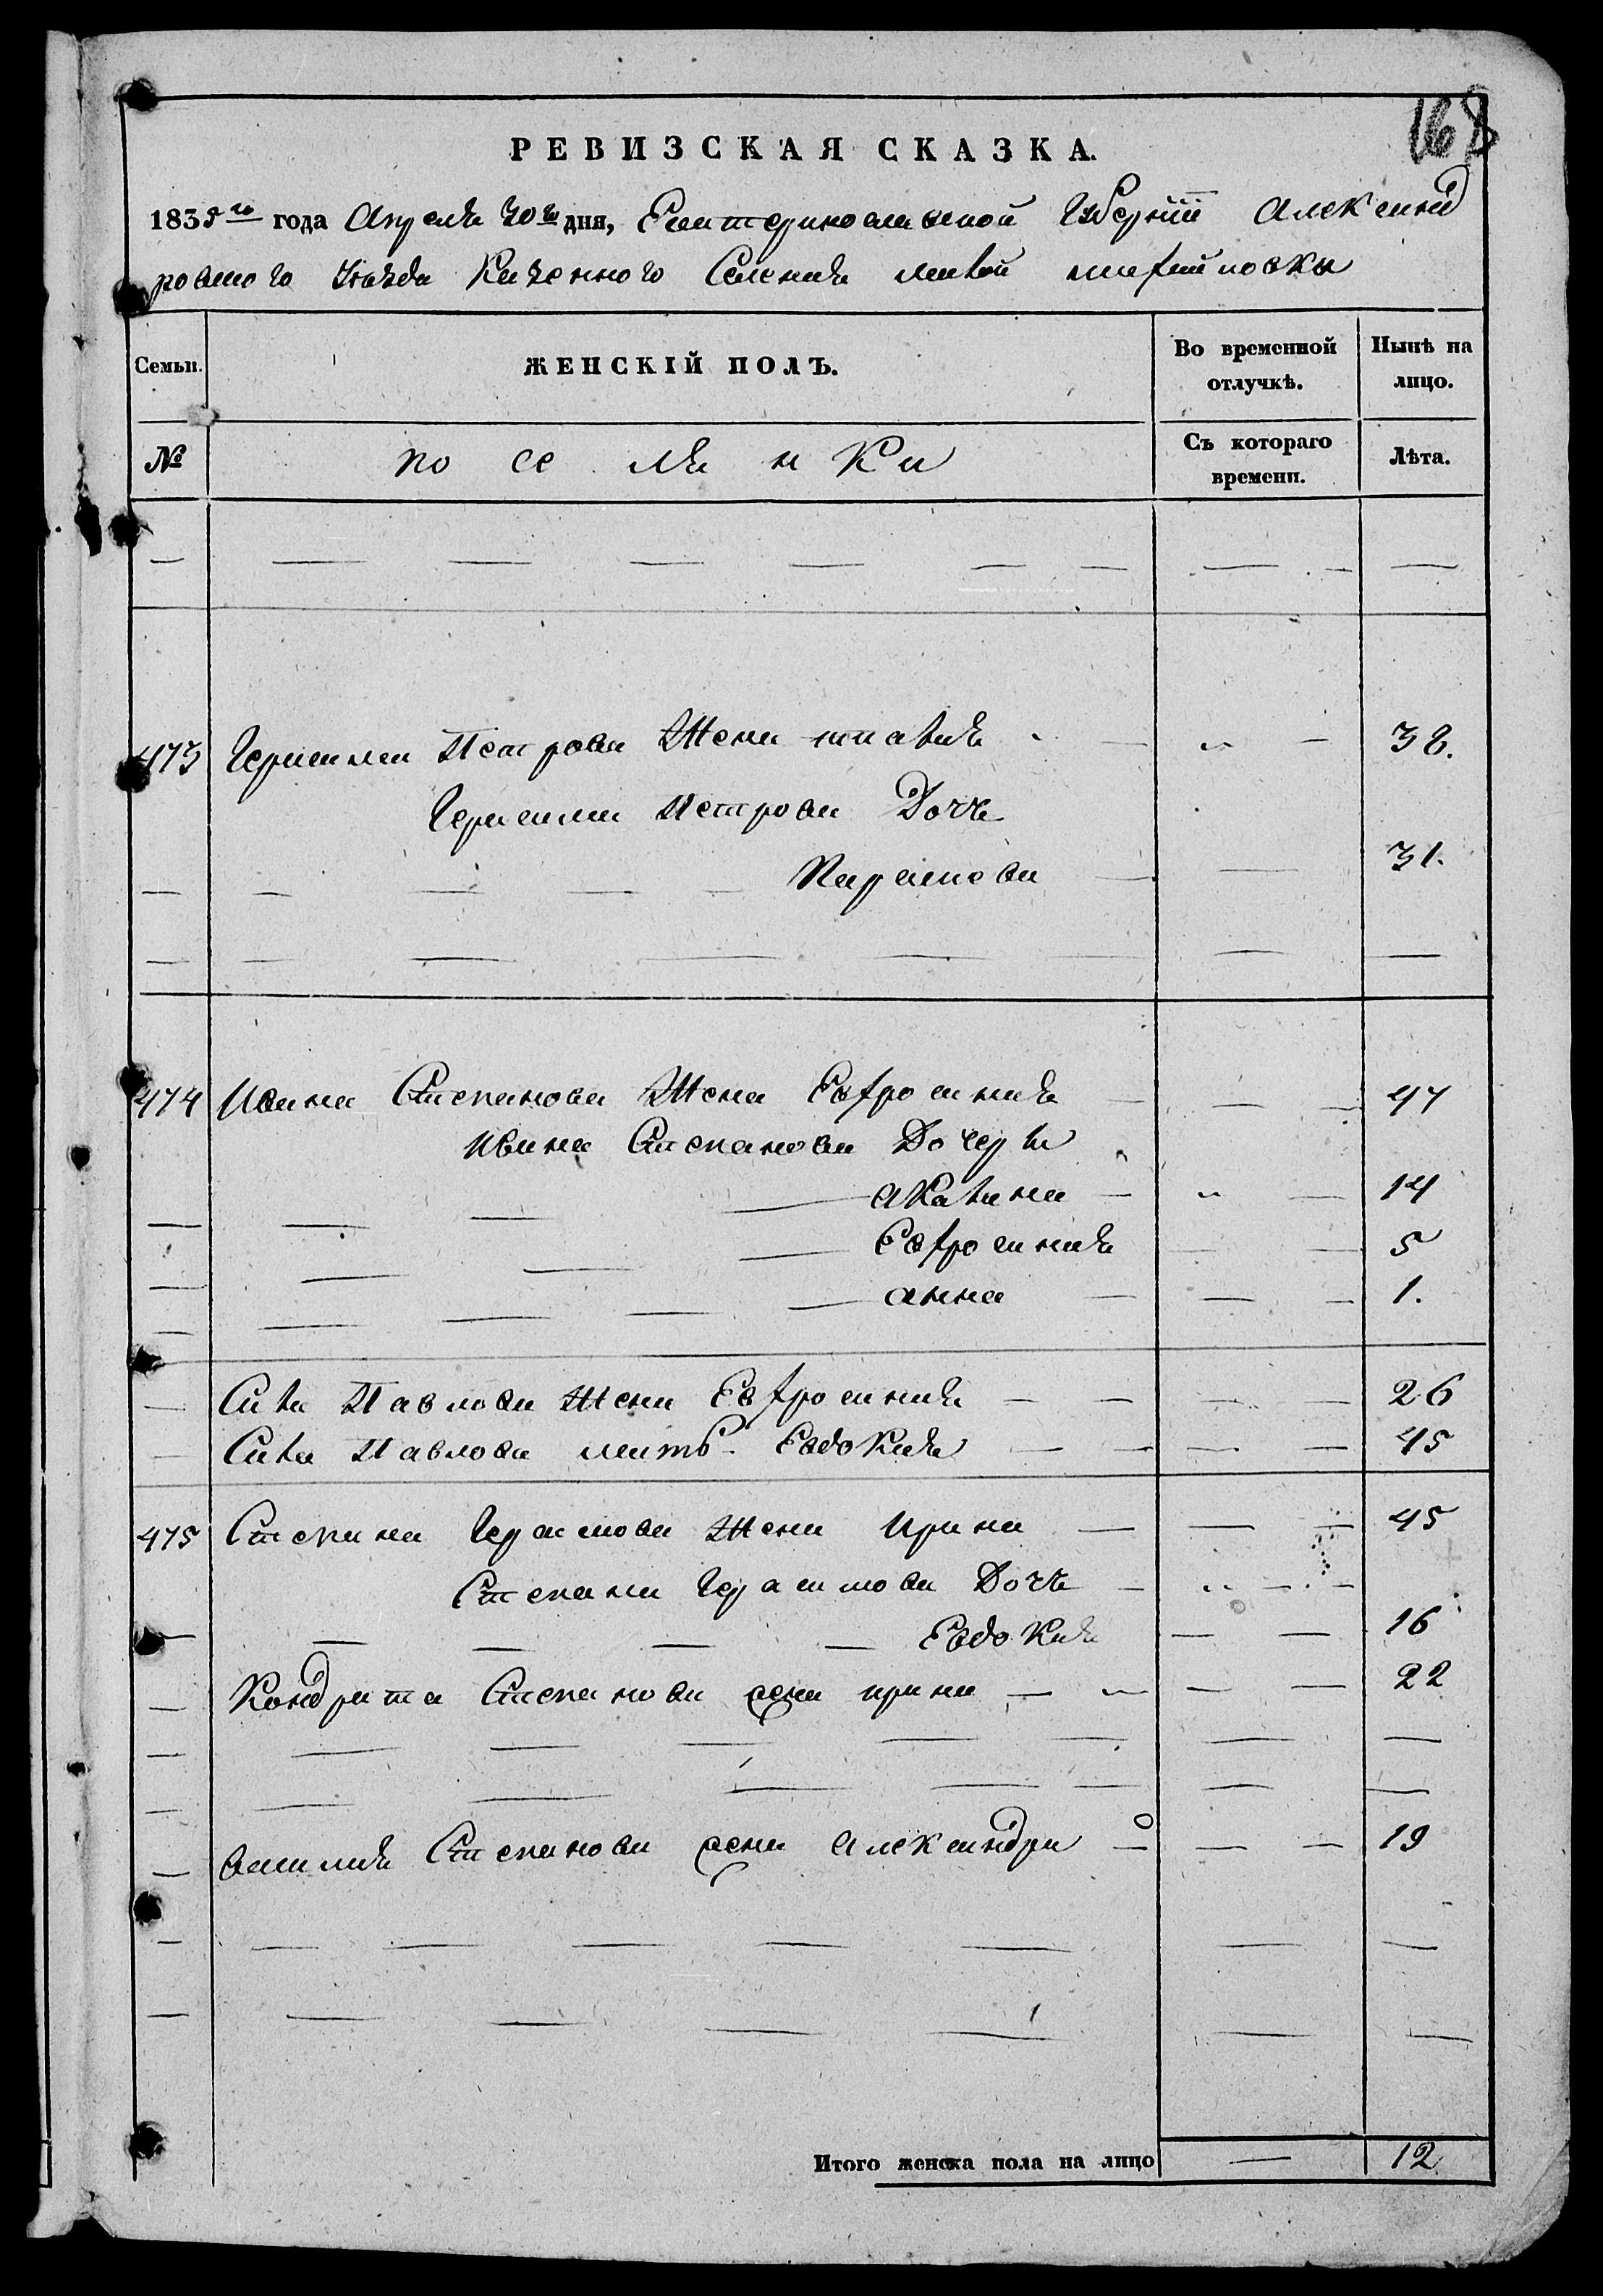 168
РЕВИЗСКАЯ СКАЗКА.
1835го года Апреля 30го дня, Екатеринославской Губернии Александ
ровского Уезда Казенного Селения малой
Семьи. ЖЕНСКІЙ ПОЛЪ. Во временной отлучкѣ. Нынѣ на лицо.
№ поселянки Съ котораго времени. Лѣта.
473 Герасима Петрова Жена 38.
Герасима Петрова Дочь
Параскова 31.
474 Ивана Степанова Жена Евфросиния 47
Ивана Степанова Дочери
акилина 14
Евфросиния 5
анна 1.
Савы Павлова Жена Евфросиния 26
Савы Павлова мать Евдокия 45
475 Степана Герасимова Жена Ирина 45
Степана Герасимова Дочь
Евдокия 16
Кондрата Степанова жена ирина 22
Василия Степанова жена Александра 19
Итого женска пола на лицо — 12